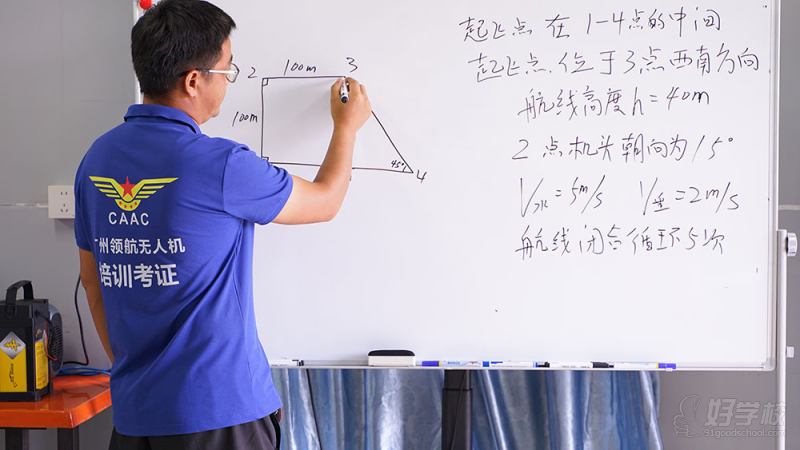 起飞点 在 1-4点的中间
起飞点位于3点西南方向
航线高度h=40m
2点机头朝向为15°
V水=5m/s V垂=2m/s
航线闭合循环5次
2 100m 3
100m
45° 4
CAAC
广州领航无人机
培训考证
好学校
91goodschool.com